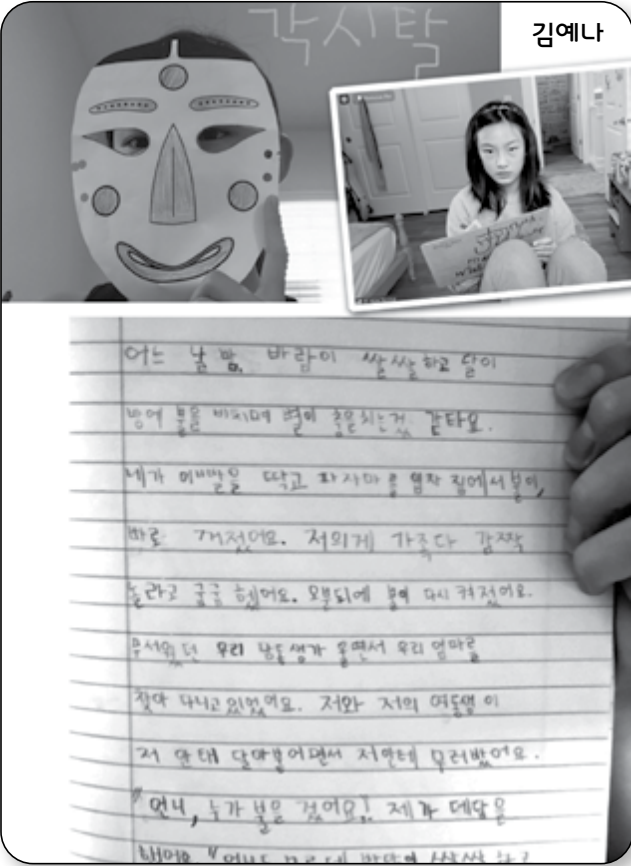 각시탈
김예나
어느 날 밤, 바람이 쌀쌀하고 달이
방에 불을 비치며 별이 춤을치는것 같타요.
네가 이빨을 딱고 파자마를 입자 집에서 불이,
바로 꺼졌어요. 저희게 가족다 깜짝
놀라고 궁금 했어요. 오분뒤에 불이 다시 켜졌어요.
무서웠던 우리 남동생가 울면서 우리 엄마를
찾아 다니고있었어요. 저와 저의 여동생이
저 한태 달아붙어면서 저한테 무러밨어요.
"언니, 누가 불은 껐어요! 제가 데답을